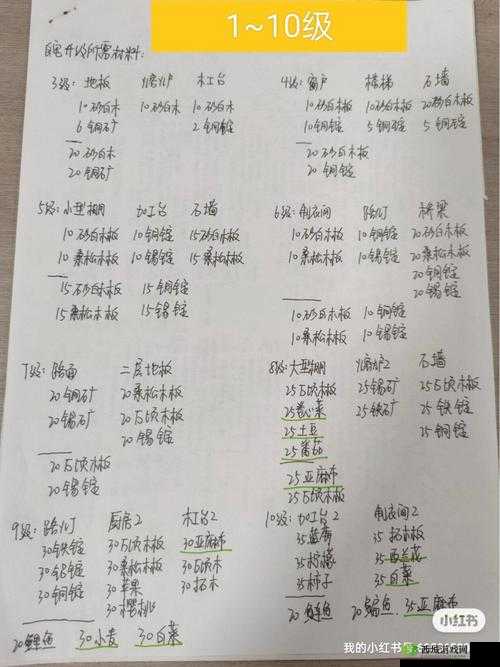 1~10级
自宅升级所需材料:
3级: 地板 熔炉 木工台
10 杉白木 10 杉白木 10 杉白木
6 铜矿 2 铜锭
20 杉白木
20 铜矿
4级: 窗户 楼梯 石墙
10 杉白木板 10 杉白木板 20 杉白木板
10 铜锭 5 铜锭 5 铜锭
20 杉白木板
20 铜锭
5级: 小型棚 加工台 石墙
10 杉白木板 10 铜锭 15 杉白木板
10 桑松木板 10 锡锭 15 桑松木板
15 杉白木板 15 铜锭
15 桑松木板 15 锡锭
6级: 制衣间 路灯 桥梁
10 杉白木板 10 铜锭 20 杉白木板
10 桑松木板 10 锡锭 20 桑松木板
20 铜锭
20 锡锭
10 杉白木板 10 铜锭
10 桑松木板 10 锡锭
7级: 路面 二层地板
20 铜矿 20 桑松木板
20 锡矿 20 木板
20 锡锭
20 木板
20 锡锭
8级: 大型棚 熔炉2 石墙
25 木板 25 锡矿 25 木板
25 卷心菜 25 铁矿 25 铁锭
25 土豆 25 铜锭
25 番茄
25 亚麻布
25 木板
9级: 路灯 厨房2 木工台2
30 铁锭 30 木板 30 亚麻布
30 铝锭 30 桑松木板 30 木
30 铜锭 30 苹果 30 拓木
30 樱桃
20 鲤鱼 30 小麦 30 白菜
10级: 加工台2 制衣间2
35 蓝莓 35 拓木板
35 柠檬 35 西兰花
35 柿子 35 白菜
20 鲜鱼 20 鳊鱼. 35 亚麻布
小红书
我的小红书
西城游戏网